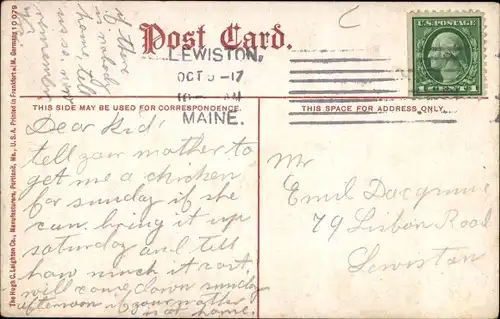 Post Card.
LEWISTON.
OCT
-17
MAINE.
U.S. POSTAGE
1 CENT 1
THIS SIDE MAY BE USED FOR CORRESPONDENCE.
THIS SPACE FOR ADDRESS ONLY.
Dear Kid!
tell your mother to
get me a chicken
for sunday if she
can bring it up
saturday and tell
how much it cost.
will come down sunday
afternoon if your mother
is at home.
if there
is nobody
home, tell
me so.
Mr
Emil
79 Lisbon Road
Lewiston
The Hugh C. Leighton Co., Manufacturers, Portland, Me., U.S.A. Printed in Frankfort a/M. Germany